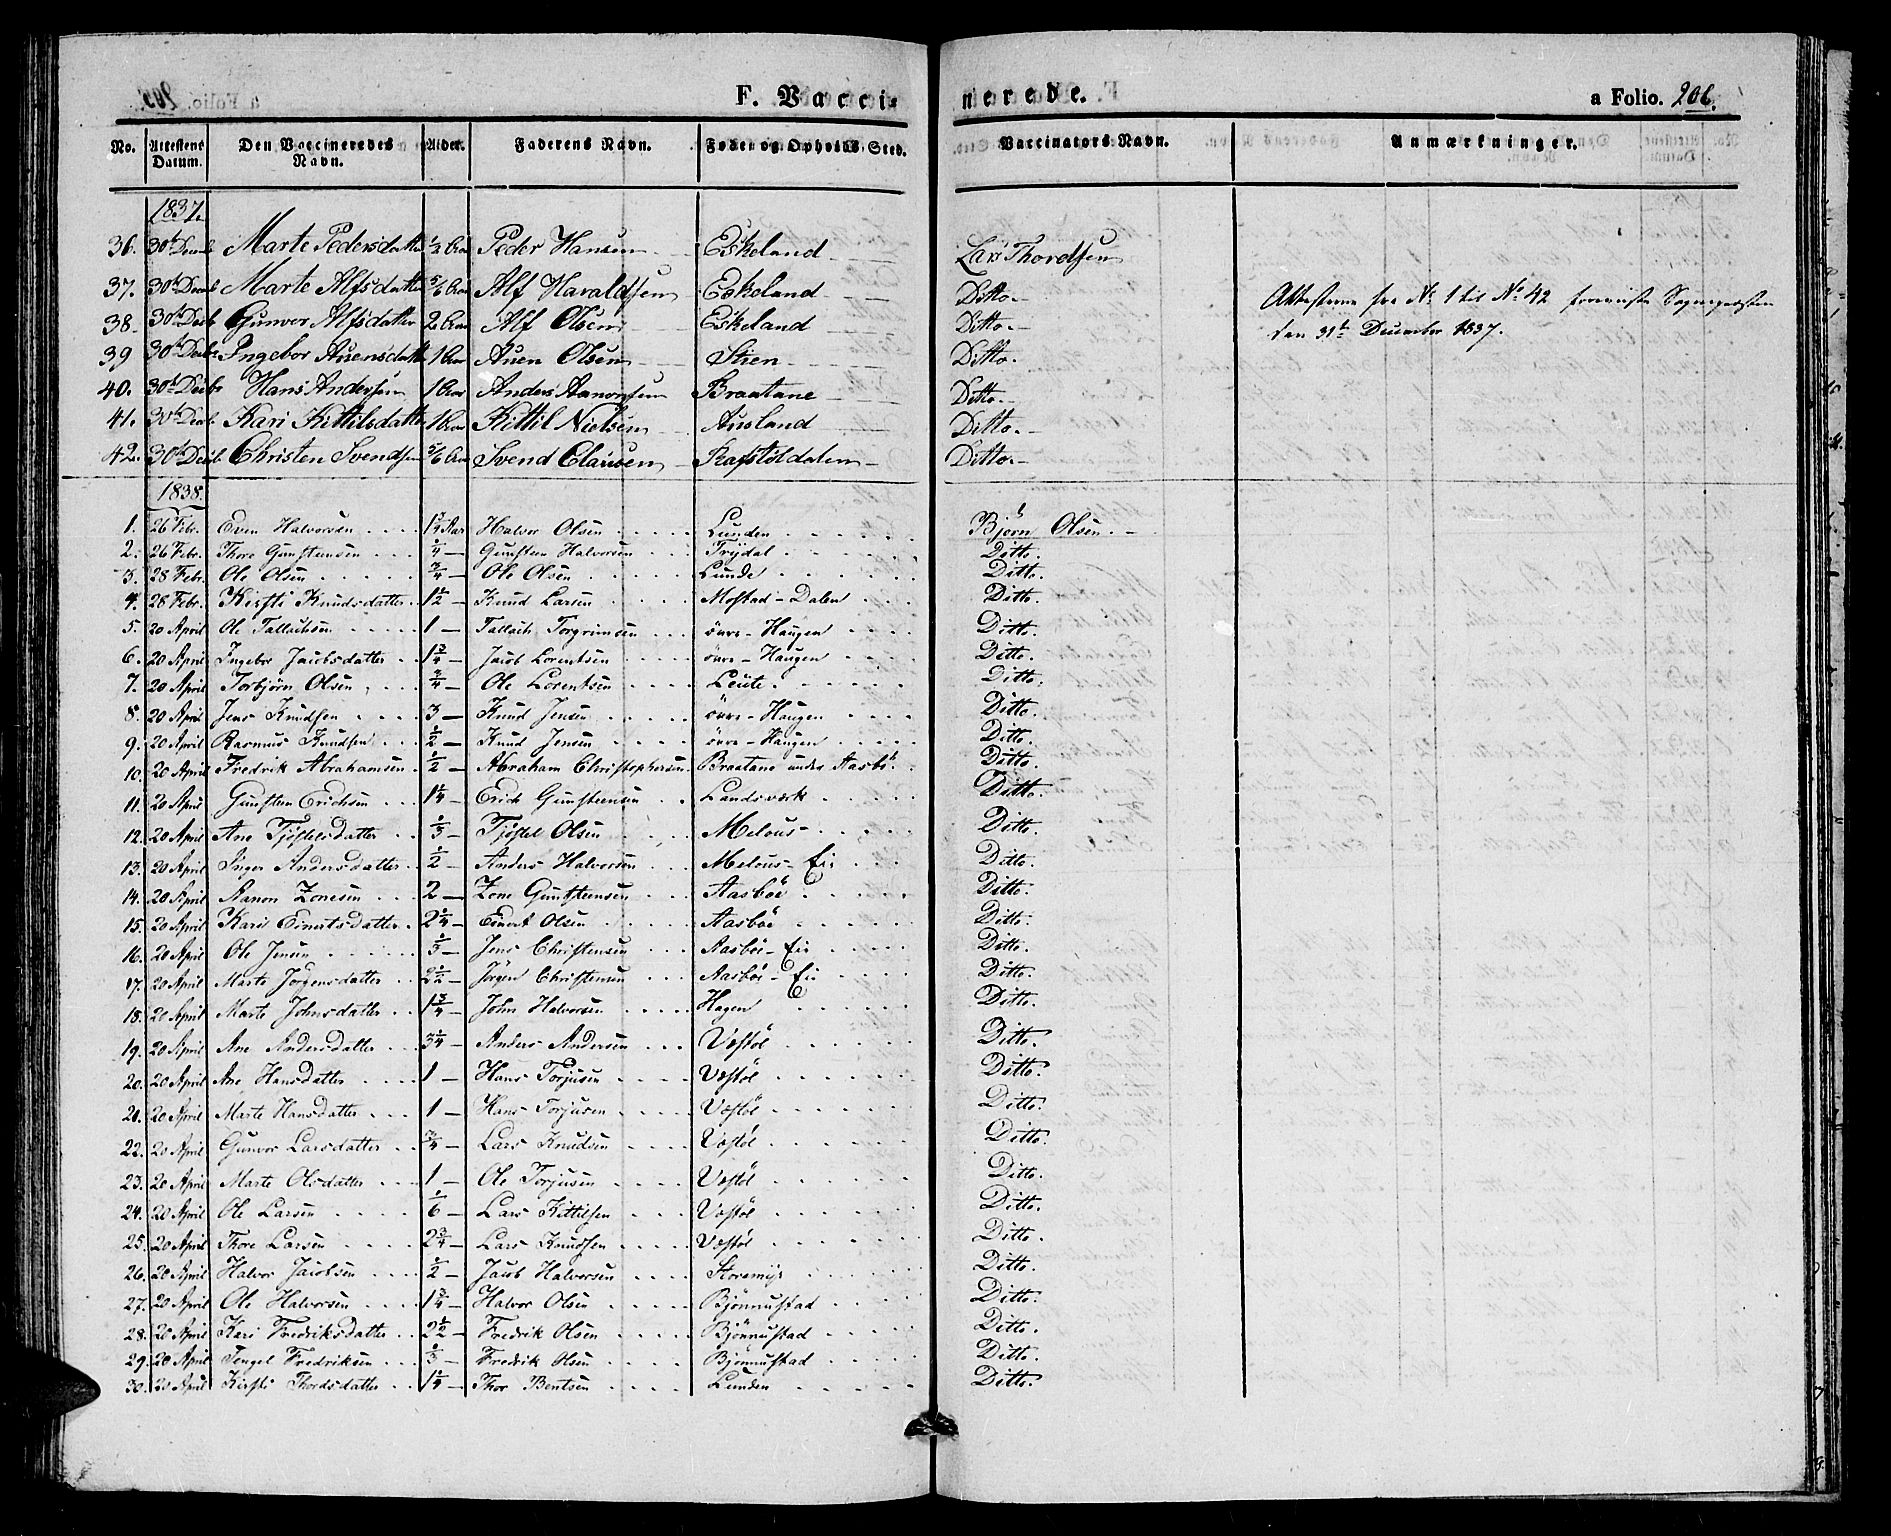 F. Vacci- nerede. a Folio. 206.
No. Attestens Datum. Den Vaccineredes Navn. Alder. Faderens Navn. Føde- og Opholds-Sted. Vaccinators Navn. Anmærkninger.
1837.
36. 30t Decemb Marte Pedersdatter ½ Aar Peder Hansen Eskeland Lars Thordsen
37. 30t Decemb Marte Alfsdatter 5/6 Aar Alf Haraldsen Eskeland Ditto. Attesterne fra No 1 til No 42
38. 30t Decb Gunvor Alfsdatter 2 Aar Alf Olsen Eskeland Ditto. den 31te December 1837.
39 30t Decbr Ingebor Auensdatter 1 Aar Auen Olsen Stien Ditto.
40. 30t Decbr Hans Andersen 1 Aar Anders Aanorsen Braatane Ditto.
41. 30t Decb. Kari Kittilsdatter 1 Aar Kittil Nielsen Ausland Ditto.
42. 30t Decb. Christen Svendsen 5/6 Aar Svend Clausen Ditto.
1838.
1. 26 Febr. Even Halvorsen 1¼ Aar Halvor Olsen Lunden Bjørn Olsen.
2. 26 Febr. Thore Gunsteensen ¼ — Gunsteen Halvorsen Trydal Ditto.
3. 28 Febr. Ole Olsen ¾ — Ole Olsen Lunde Ditto.
4. 28 Febr. Kirsti Knudsdatter 1½ — Knud Larsen Mostad-Dalen Ditto.
5. 20 April Ole Tallachsen 1 — Tallach Torgrimsen övre-Haugen Ditto.
6. 20 April Ingebor Jacobsdatter 1¾ — Jacob Lorentsen övre-Haugen Ditto.
7. 20 April Torbjörn Olsen ¾ — Ole Lorentsen Leite. Ditto.
8. 20 April Jens Knudsen 3 — Knud Jensen övre-Haugen Ditto.
9. 20 April Rasmus Knudsen ½ — Knud Jensen övre-Haugen Ditto.
10. 20 April Fredrik Abrahamsen ½ — Abraham Christophersen Braatane under Aasbö. Ditto.
11. 20 April Gunsteen Erichsen 1¼ — Erich Gunsteensen Landsværk Ditto.
12. 20 April Ane Tjöstelsdatter ⅓ — Tjöstel Olsen Melaas Ditto.
13. 20 April Inger Andersdatter ½ — Anders Halvorsen Melaas-Eie Ditto.
14. 20 April Aanon Zonesen 2 — Zone Gunsteensen Aasböe Ditto.
15. 20 April Kari Einertsdatter 2¼ — Einert Olsen Aasböe Ditto.
16. 20 April Ole Jensen ⅓ — Jens Christensen Aasböe-Eie Ditto.
17. 20 April Marte Jörgensdatter 2½ — Jörgen Christensen Aasböe-Eie Ditto.
18. 20 April Marte Johnsdatter 1¾ — John Halvorsen Hagen Ditto.
19. 20 April Ane Andersdatter 3¼ — Anders Andersen Vestöl Ditto.
20. 20 April Ane Hansdatter 1 — Hans Torjusen Vestöl Ditto.
21. 20 April Marte Hansdatter 1 — Hans Torjusen Vestöl Ditto.
22. 20 April Gunvor Larsdatter ¾ — Lars Knudsen Vestöl Ditto.
23. 20 April Marte Olsdatter 1 — Ole Torjusen Vestöl Ditto.
24. 20 April Ole Larsen 1/6 — Lars Kittilsen Vestöl Ditto.
25. 20 April Thore Larsen 2¾ — Lars Knudsen Vestöl Ditto.
26. 20 April Halvor Jacobsen ½ — Jacob Halvorsen Storemyr Ditto.
27. 20 April Ole Halvorsen 1¾ — Halvor Olsen Bjönnustad Ditto.
28. 20 April Kari Fredriksdatter 2½ — Fredrik Olsen Bjönnustad Ditto.
29. 20 April Tengel Fredriksen ⅓ — Fredrik Olsen Bjönnustad Ditto.
30. 20 April Kirsti Thordsdatter 1¼ — Thor Bentsen Lunden Ditto.